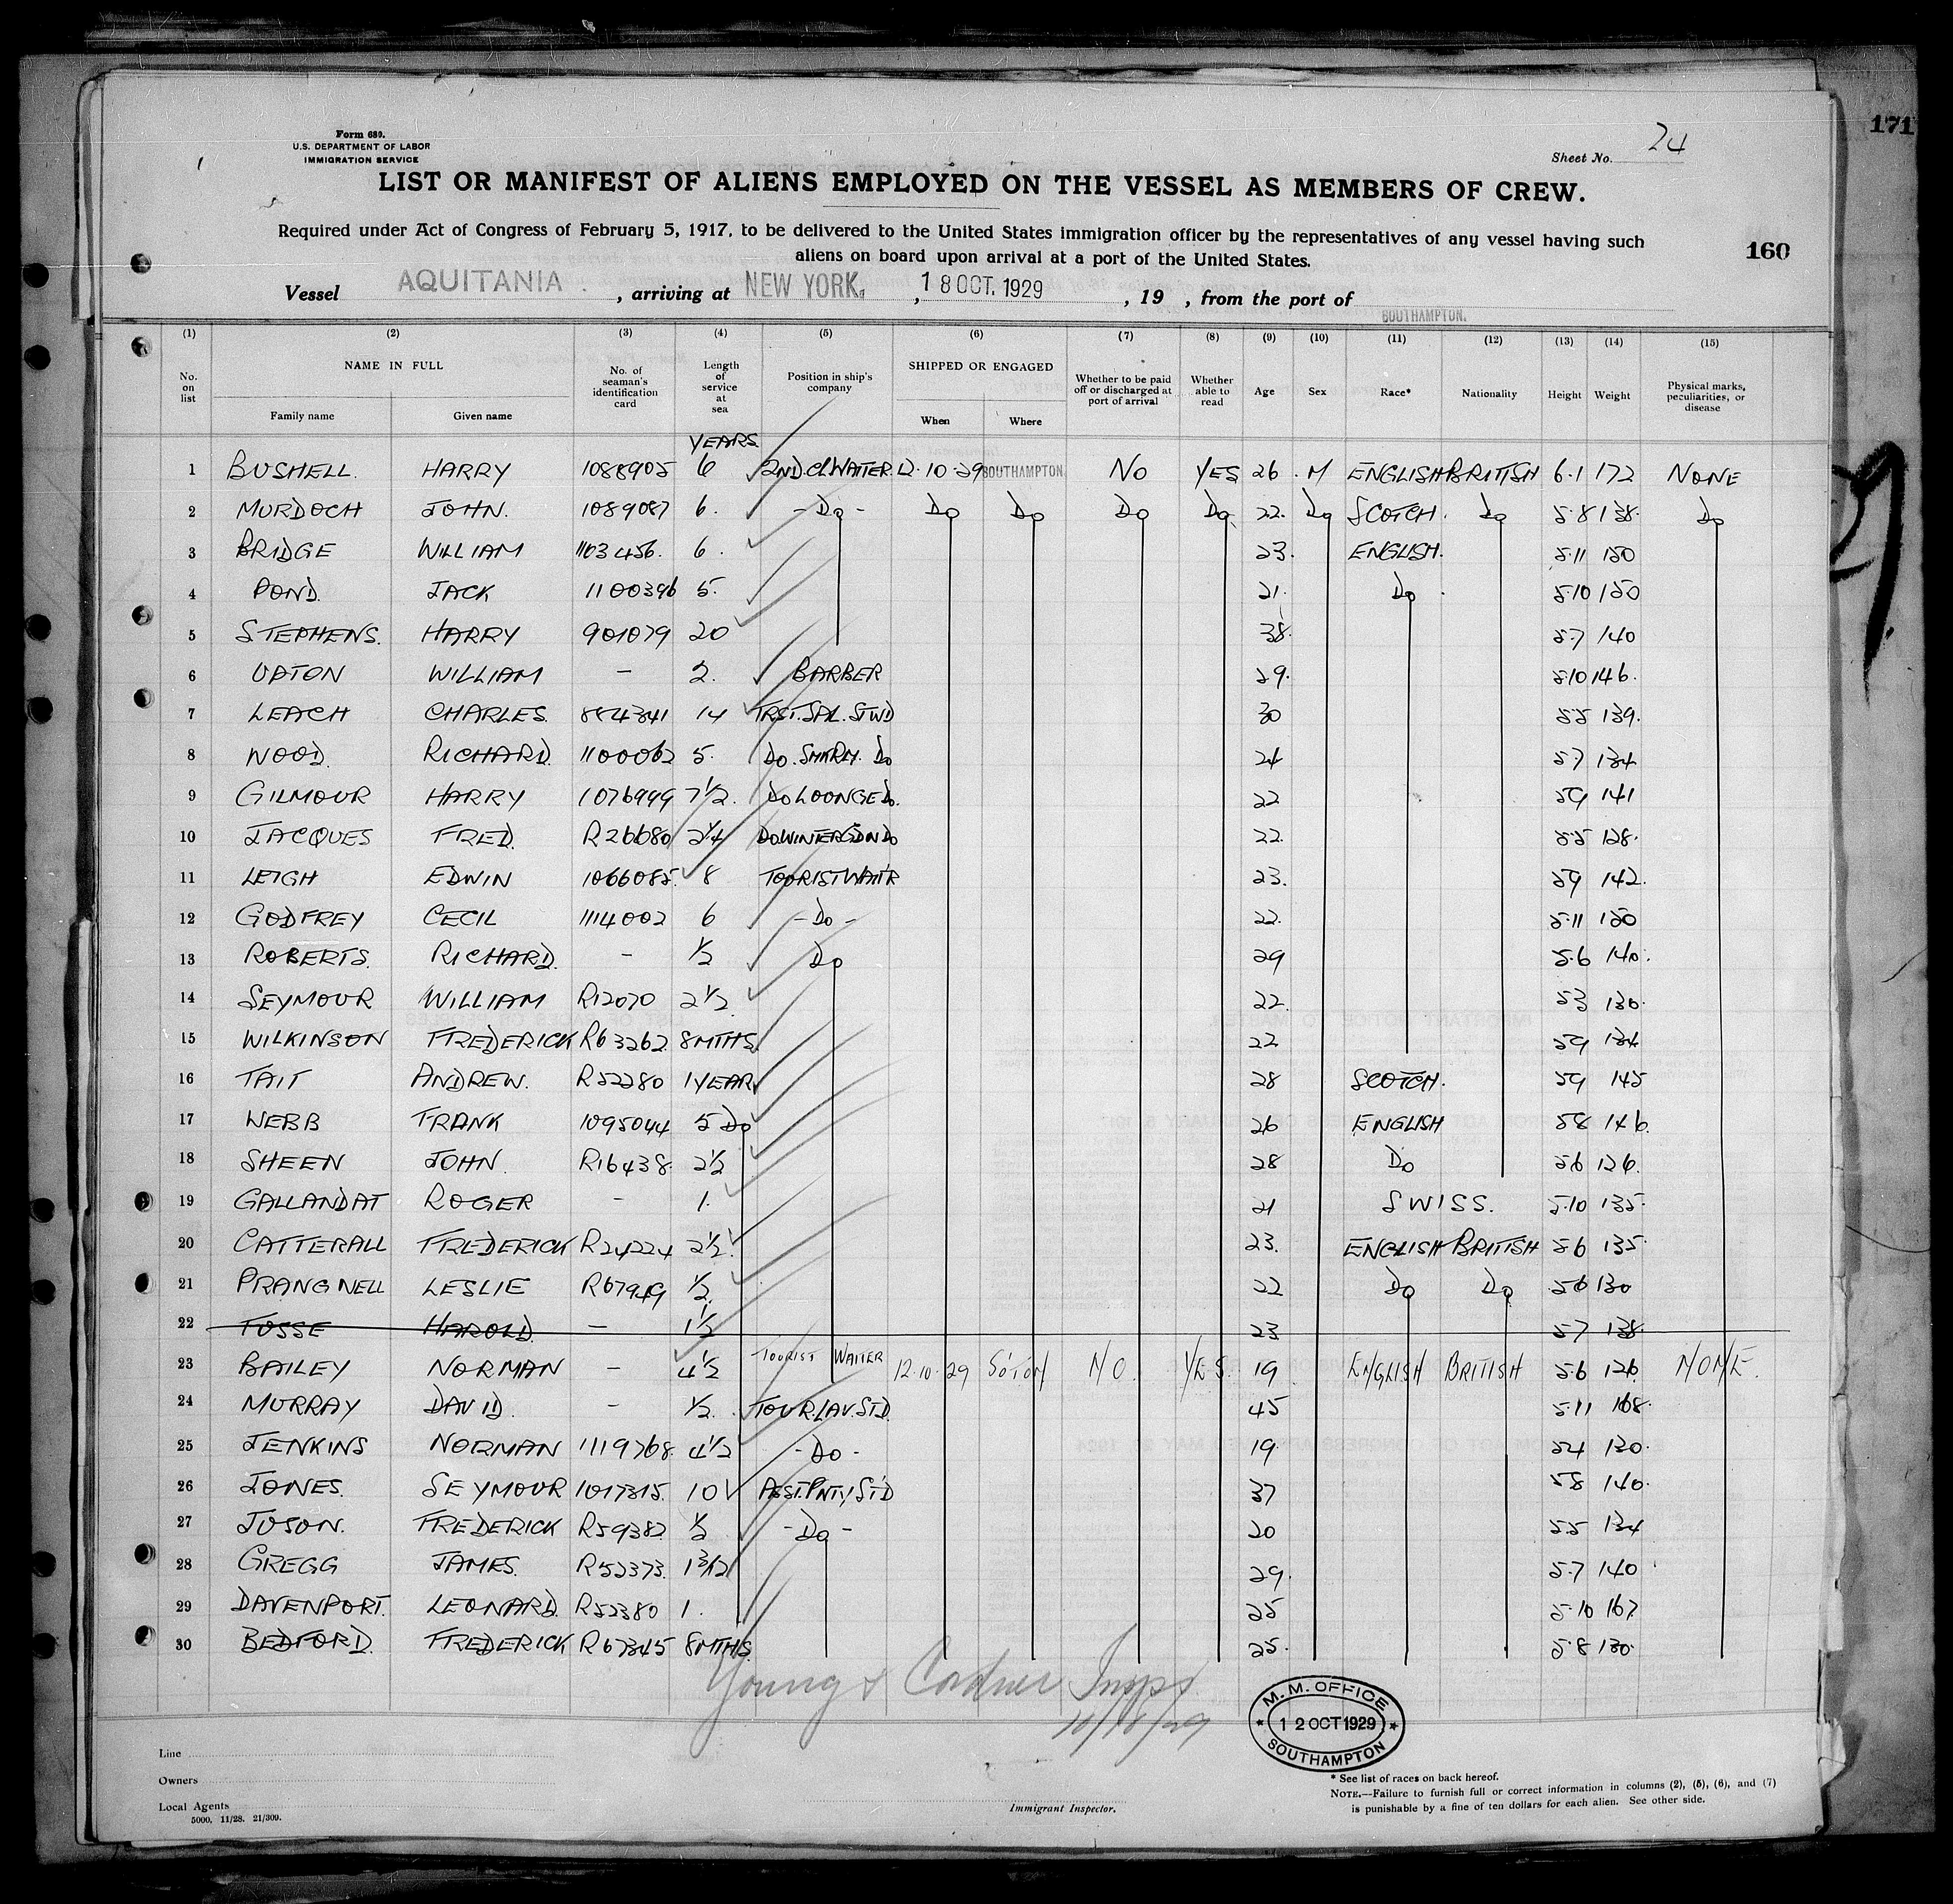 171
Form 689.
U.S. DEPARTMENT OF LABOR
IMMIGRATION SERVICE
Sheet No. 24
LIST OR MANIFEST OF ALIENS EMPLOYED ON THE VESSEL AS MEMBERS OF CREW.
Required under Act of Congress of February 5, 1917, to be delivered to the United States immigration officer by the representatives of any vessel having such
aliens on board upon arrival at a port of the United States.
160
Vessel AQUITANIA . , arriving at NEW YORK. , 18 OCT. 1929 , 19 , from the port of SOUTHAMPTON.
(1) (2) (3) (4) (5) (6) (7) (8) (9) (10) (11) (12) (13) (14) (15)
No. on list NAME IN FULL Family name Given name No. of seaman's identification card Length of service at sea Position in ship's company SHIPPED OR ENGAGED When Where Whether to be paid off or discharged at port of arrival Whether able to read Age Sex Race* Nationality Height Weight Physical marks, peculiarities, or disease
YEARS
1 BUSHELL. HARRY 1088905 6 2ND.CL.WAITER. 12.10.29 SOUTHAMPTON. NO YES 26 . M ENGLISH BRITISH 6.1 172 NONE
2 MURDOCH JOHN. 1089087 6. -Do- Do Do Do Do 22. Do SCOTCH. Do 5.8 138. Do
3 BRIDGE WILLIAM 1103456. 6. 23. ENGLISH. 5.11 150
4 POND. JACK 1100396 5. 21. Do 5.10 150
5 STEPHENS. HARRY 901079 20 38. 5.7 140
6 UPTON WILLIAM - 2. BARBER 29. 5.10 146.
7 LEACH CHARLES. 884341 14 TRST.SAL.STWD 30 5.5 139.
8 WOOD. RICHARD. 1100062 5. Do. SMKRM. Do 24 5.7 134
9 GILMOUR HARRY 1076999 7½. Do LOUNGE Do. 22 59 141
10 JACQUES FRED. R26680 2¼ Do WINTERGDN Do 22. 5.5 128.
11 LEIGH EDWIN 1066085. 8 TOURIST WAITR 23. 59 142.
12 GODFREY CECIL 1114002 6 -Do- 22. 5.11 150
13 ROBERTS. RICHARD. - ½ Do 29 5.6 140.
14 SEYMOUR WILLIAM R12070 2½ 22. 53 130.
15 WILKINSON FREDERICK R63262. 8MTHS. 22 59 134
16 TAIT ANDREW. R52280 1YEAR 28 SCOTCH. 59 145
17 WEBB FRANK 1095044 5 Do 26 ENGLISH 58 146.
18 SHEEN JOHN. R16438. 2½ 28 Do 56 126.
19 GALLANDAT ROGER - 1. 21 SWISS. 5.10 135.
20 CATTERALL FREDERICK R24224 2½. 23. ENGLISH BRITISH 56 135.
21 PRANGNELL LESLIE R67949 ½. 22 Do Do 56 130
22 TOSSE HAROLD. - 1½ 23 5.7 138.
23 BAILEY NORMAN - 4½ TOURIST WAITER 12.10.29 SO'TON NO. YES. 19 ENGLISH BRITISH 5.6 126. NONE.
24 MURRAY DAVID. - ½. TOUR.LAV.STD. 45 5.11 168.
25 JENKINS NORMAN 1119768. 4½ -Do- 19. 54 130.
26 JONES. SEYMOUR 1017315. 10 ASST.PNTY.STD 37 58 140.
27 JUSON. FREDERICK R59382. ½ -Do- 20 5.5 134
28 GREGG JAMES. R52373. 1 3/12 29. 5.7 140
29 DAVENPORT. LEONARD. R52380 1. 25 5.10 167.
30 BEDFORD. FREDERICK R67345 8MTHS. 25. 5.8 130.
Young & Cordner Insps
10/18/29
M. M. OFFICE
* 12 OCT 1929 *
SOUTHAMPTON
Line
Owners
Local Agents
5000. 11/28. 21/309.
Immigrant Inspector.
* See list of races on back hereof.
NOTE.—Failure to furnish full or correct information in columns (2), (5), (6), and (7)
is punishable by a fine of ten dollars for each alien. See other side.